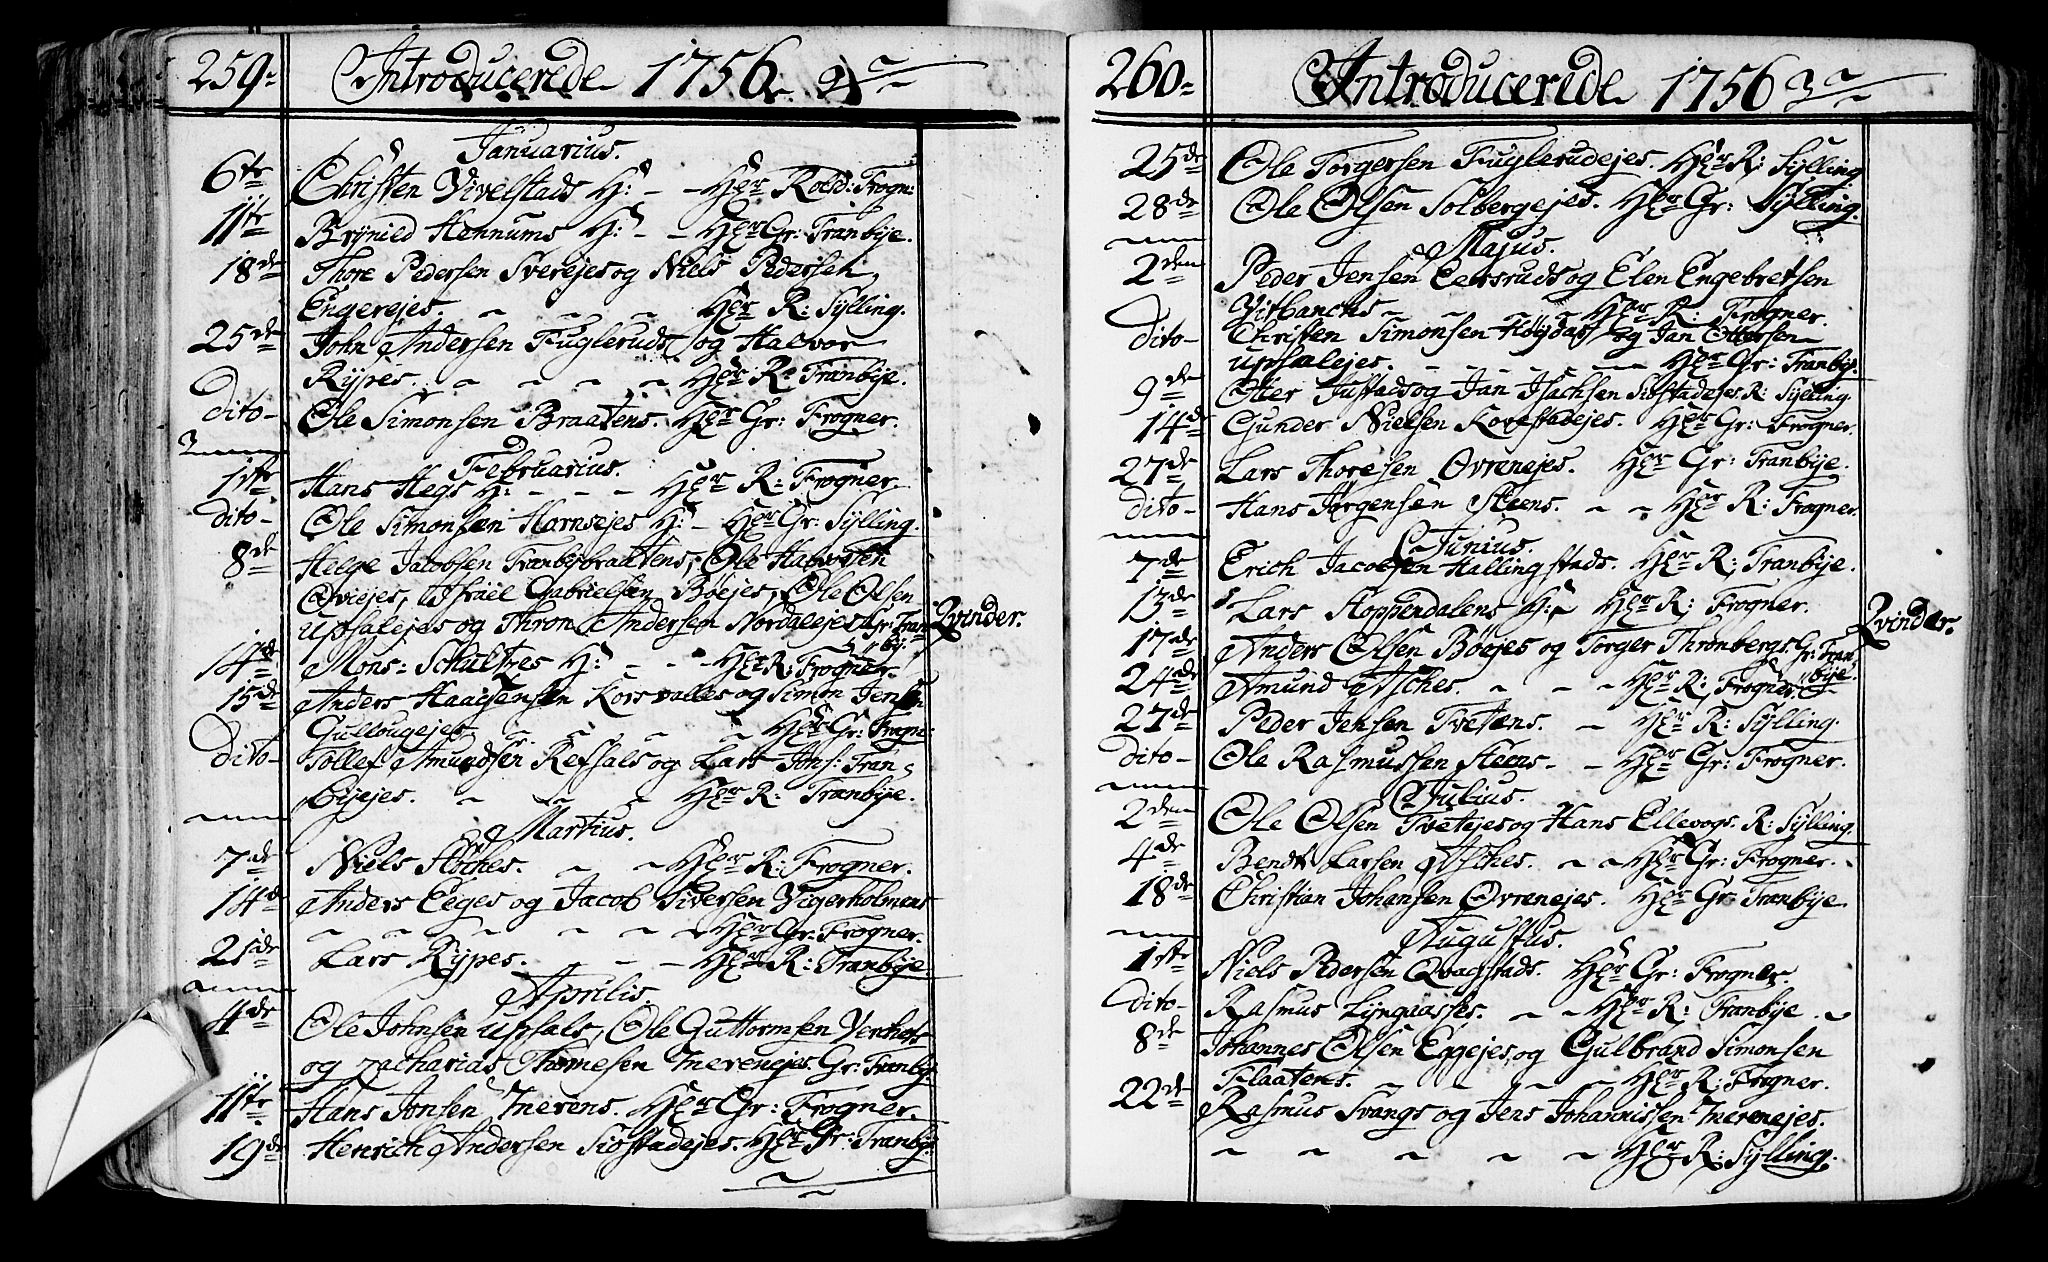 259. Introducerede 1756. 2
Januarius.
6te Christen Vivelstads H: - - Her Rolid: Frogn:
11te Brynild Hennums H: - - Her Gr: Tranbÿe.
18de Thore Pedersen Sverejes og Niels Pedersen
Engerejes. ~ ~ ~ Her R: Sÿlling.
25de John Andersen Fuglerud og Halvor
Rÿpes. ~ ~ ~ ~ Her R: Tranbÿe.
Dito - Ole Simonsen Braatens. Her Gr: Frogner.
Februarius.
1ste Hans Hegs H: - - - Her R: Frogner
Dito - Ole Simonsen Harnsejes H: - Her Gr: Sÿlling.
8de Helge Jacobsen Tranbÿbraatens, Ole Halvorsen
Qviejes, Israel Gabrielsen Bøejes, Ole Olsen
Upsalejes og Thron Andersen Nordalejes Gr: Tran
bÿ. Qvinder.
14de Mons: Schultzes H: - - - Her R: Frogner.
15de Anders Haagensen Korsvalles og Simon Jensen
Gullougejes ~ ~ ~ ~ Her Gr: Frogn:
Dito - Tollef Amundsen Refsals og Lars Jons: Tran
bÿejes. ~ ~ ~ Her R: Tranbÿe.
Martius.
7de Niels Støches. ~ ~ Her R: Frogner.
14de Anders Eeges og Jacob Siversen Vigerholmens
~ ~ ~ ~ ~ ~ Her Gr: Frogner.
21de Lars Rÿpes. ~ - - Her R: Tranbÿe.
Aprilis.
4de Ole Johnsen Upsals, Ole Guttormsen Verkets
og Zacharias Thomesen Inerenejes. Gr: Tranbÿ.
11te Hans Jonsen Inerens. Her Gr: Frogner.
19de Henrich Andersen Siøstadejes. Her Gr: Tranbÿ.
260. Introducerede 1756 3
25de Ole Torgersen Fuglerudejes. Her R: Sÿlling
28de Ole Olsen Solbergejes. Her Gr: Sÿlling.
Majus.
2den Peder Jensen Eersruds og Elen Engebretsen
Vitbanchs ~ ~ ~ Her R: Frogner.
Dito - Christen Simonsen Høgdas og Jan Ottersen
Upsalejes. - - - - Her Gr: Tranbÿ.
9de Otter Justads og Jan Isachsen Siøstadejes R: Sÿlling.
14de Gunder Nielsen Korestadejes. Her Gr: Frogner.
27de Lars Thoresen Ovrenejes. Her Gr: Tranbÿe.
Dito - Hans Jørgensen Steens. ~ ~ Her R: Frogner.
Junius.
7de Erich Jacobsen Hallingstads. Her R: Tranbÿe.
13de Lars Koppendalens H: ~ Her R: Frogner.
17de Anders Olsen Bøejes og Torger Thronbergs. Gr: Tran
bÿe. Qvinder.
24de Amund Asches. ~ ~ ~ Her R: Frogner.
27de Peder Jensen Tvetens. ~ Her R: Sÿlling.
Dito - Ole Rasmussen Steens - - Her Gr: Frogner.
Julius.
2den Ole Olsen Tvetejes og Hans Ellevogs. R: Sÿlling.
4de Bendt Larsen Asches. ~ ~ Her Gr: Frogner.
18de Christian Johansen Ovrenejes. Her Gr: Tranbÿe
Augustus.
1ste Niels Pedersen Qvagstads. Her Gr: Frogner.
Dito - Rasmus Lÿngaasses. ~ ~ Her R: Tranbÿe. ~
8de Johannes Olsen Eggejes, og Gulbrand Simonsen
Flaatens. ~ ~ ~ ~ Her R: Frogner.
22de Rasmus Svangs og Jens Johannissen Inerenejes.
~ ~ ~ ~ ~ Her R: Sÿlling.